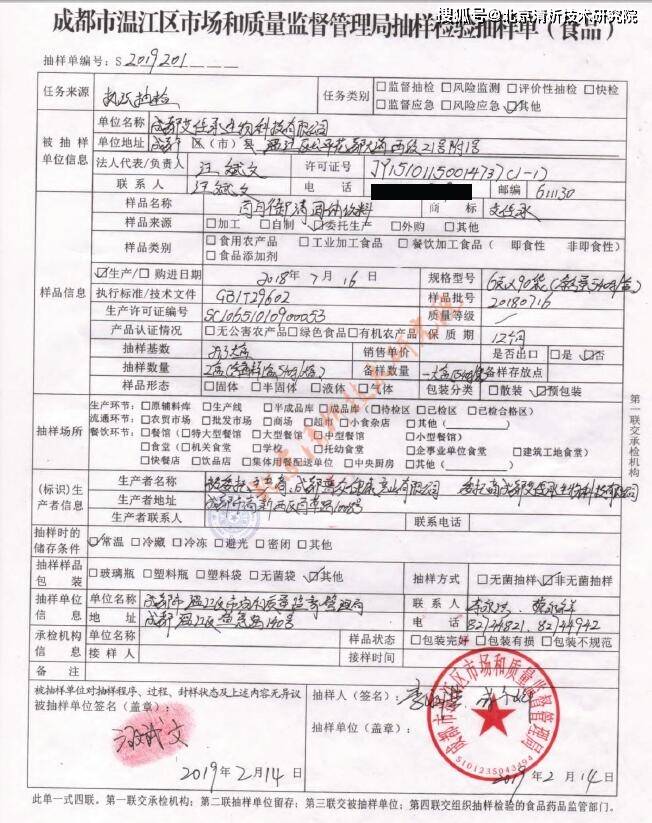 搜狐号@北京清析技术研究院
成都市温江区市场和质量监督管理局抽样检验抽样单（食品）
抽样单编号：S2019201
任务来源 执法抽检 任务类别 □监督抽检 □风险监测 □评价性抽检 □快检
□监督应急 □风险应急 ☑其他
被抽样单位信息 单位名称 成都艾佳承生物科技有限公司
单位地址 成都市 区（市）县 西段21号附1号
法人代表/负责人 汪斌文 许可证号 JY15101150014737(1-1)
联系人 汪斌文 电话 邮编 611130
样品信息 样品名称 固体饮料 商标 艾佳承
样品来源 □加工 □自制 ☑委托生产 □外购 □其他
样品类别 □食用农产品 □工业加工食品 □餐饮加工食品（ 即食性 非即食性）
□食品添加剂
☑生产/□购进日期 2018年7月16日 规格型号 6克×90袋
执行标准/技术文件 GB/T29602 样品批号 20180716
生产许可证编号 SC10651010900053 质量等级 /
产品认证情况 □无公害农产品□绿色食品□有机农产品 保质期 12个月
抽样基数 销售单价 是否出口 □是 ☑否
抽样数量 备样数量 备样存放点
样品形态 □固体 □半固体 □液体 □气体 包装分类 □散装 ☑预包装
抽样场所 生产环节：□原辅料库 □生产线 □半成品库 □成品库（□待检区 □已检区 □已检合格区）
流通环节：□农贸市场 □批发市场 □商场 □超市 □小食杂店 □其他（ ）
餐饮环节：□餐馆（□特大型餐馆 □大型餐馆 □中型餐馆 □小型餐馆）
□食堂（□机关食堂 □学校 □托幼食堂 □企事业单位食堂 □建筑工地食堂）
□快餐店 □饮品店 □集体用餐配送单位 □中央厨房 □其他（ ）
(标识)生产者信息 生产者名称 被委托生产商：成都 有限公司 委托商成都艾佳承生物科技有限公司
生产者地址 成都市高新西区 1008号
生产者联系人 联系电话
抽样时的储存条件 ☑常温 □冷藏 □冷冻 □避光 □密闭 □其他
抽样样品包装 □玻璃瓶 □塑料瓶 □塑料袋 □无菌袋 ☑其他 抽样方式 □无菌抽样 ☑非无菌抽样
抽样单位信息 单位名称 成都市温江区市场和质量监督管理局 联系人
地址 成都温江区 140号 电话 82724821、82744942
承检机构信息 单位名称 样品状态 □包装完好 □包装有损 □包装不规范
接样人 接样时间
备注
被抽样单位对抽样程序、过程、封样状态及上述内容无异议
被抽样单位签名（盖章）：
汪斌文
2019年2月14日
抽样人（签名）：
抽样单位（盖章）：
成都市温江区市场和质量监督管理局
5101235043494
2019年2月14日
第一联交承检机构
此单一式四联。第一联交承检机构；第二联抽样单位留存；第三联交被抽样单位；第四联交组织抽样检验的食品药品监管部门。